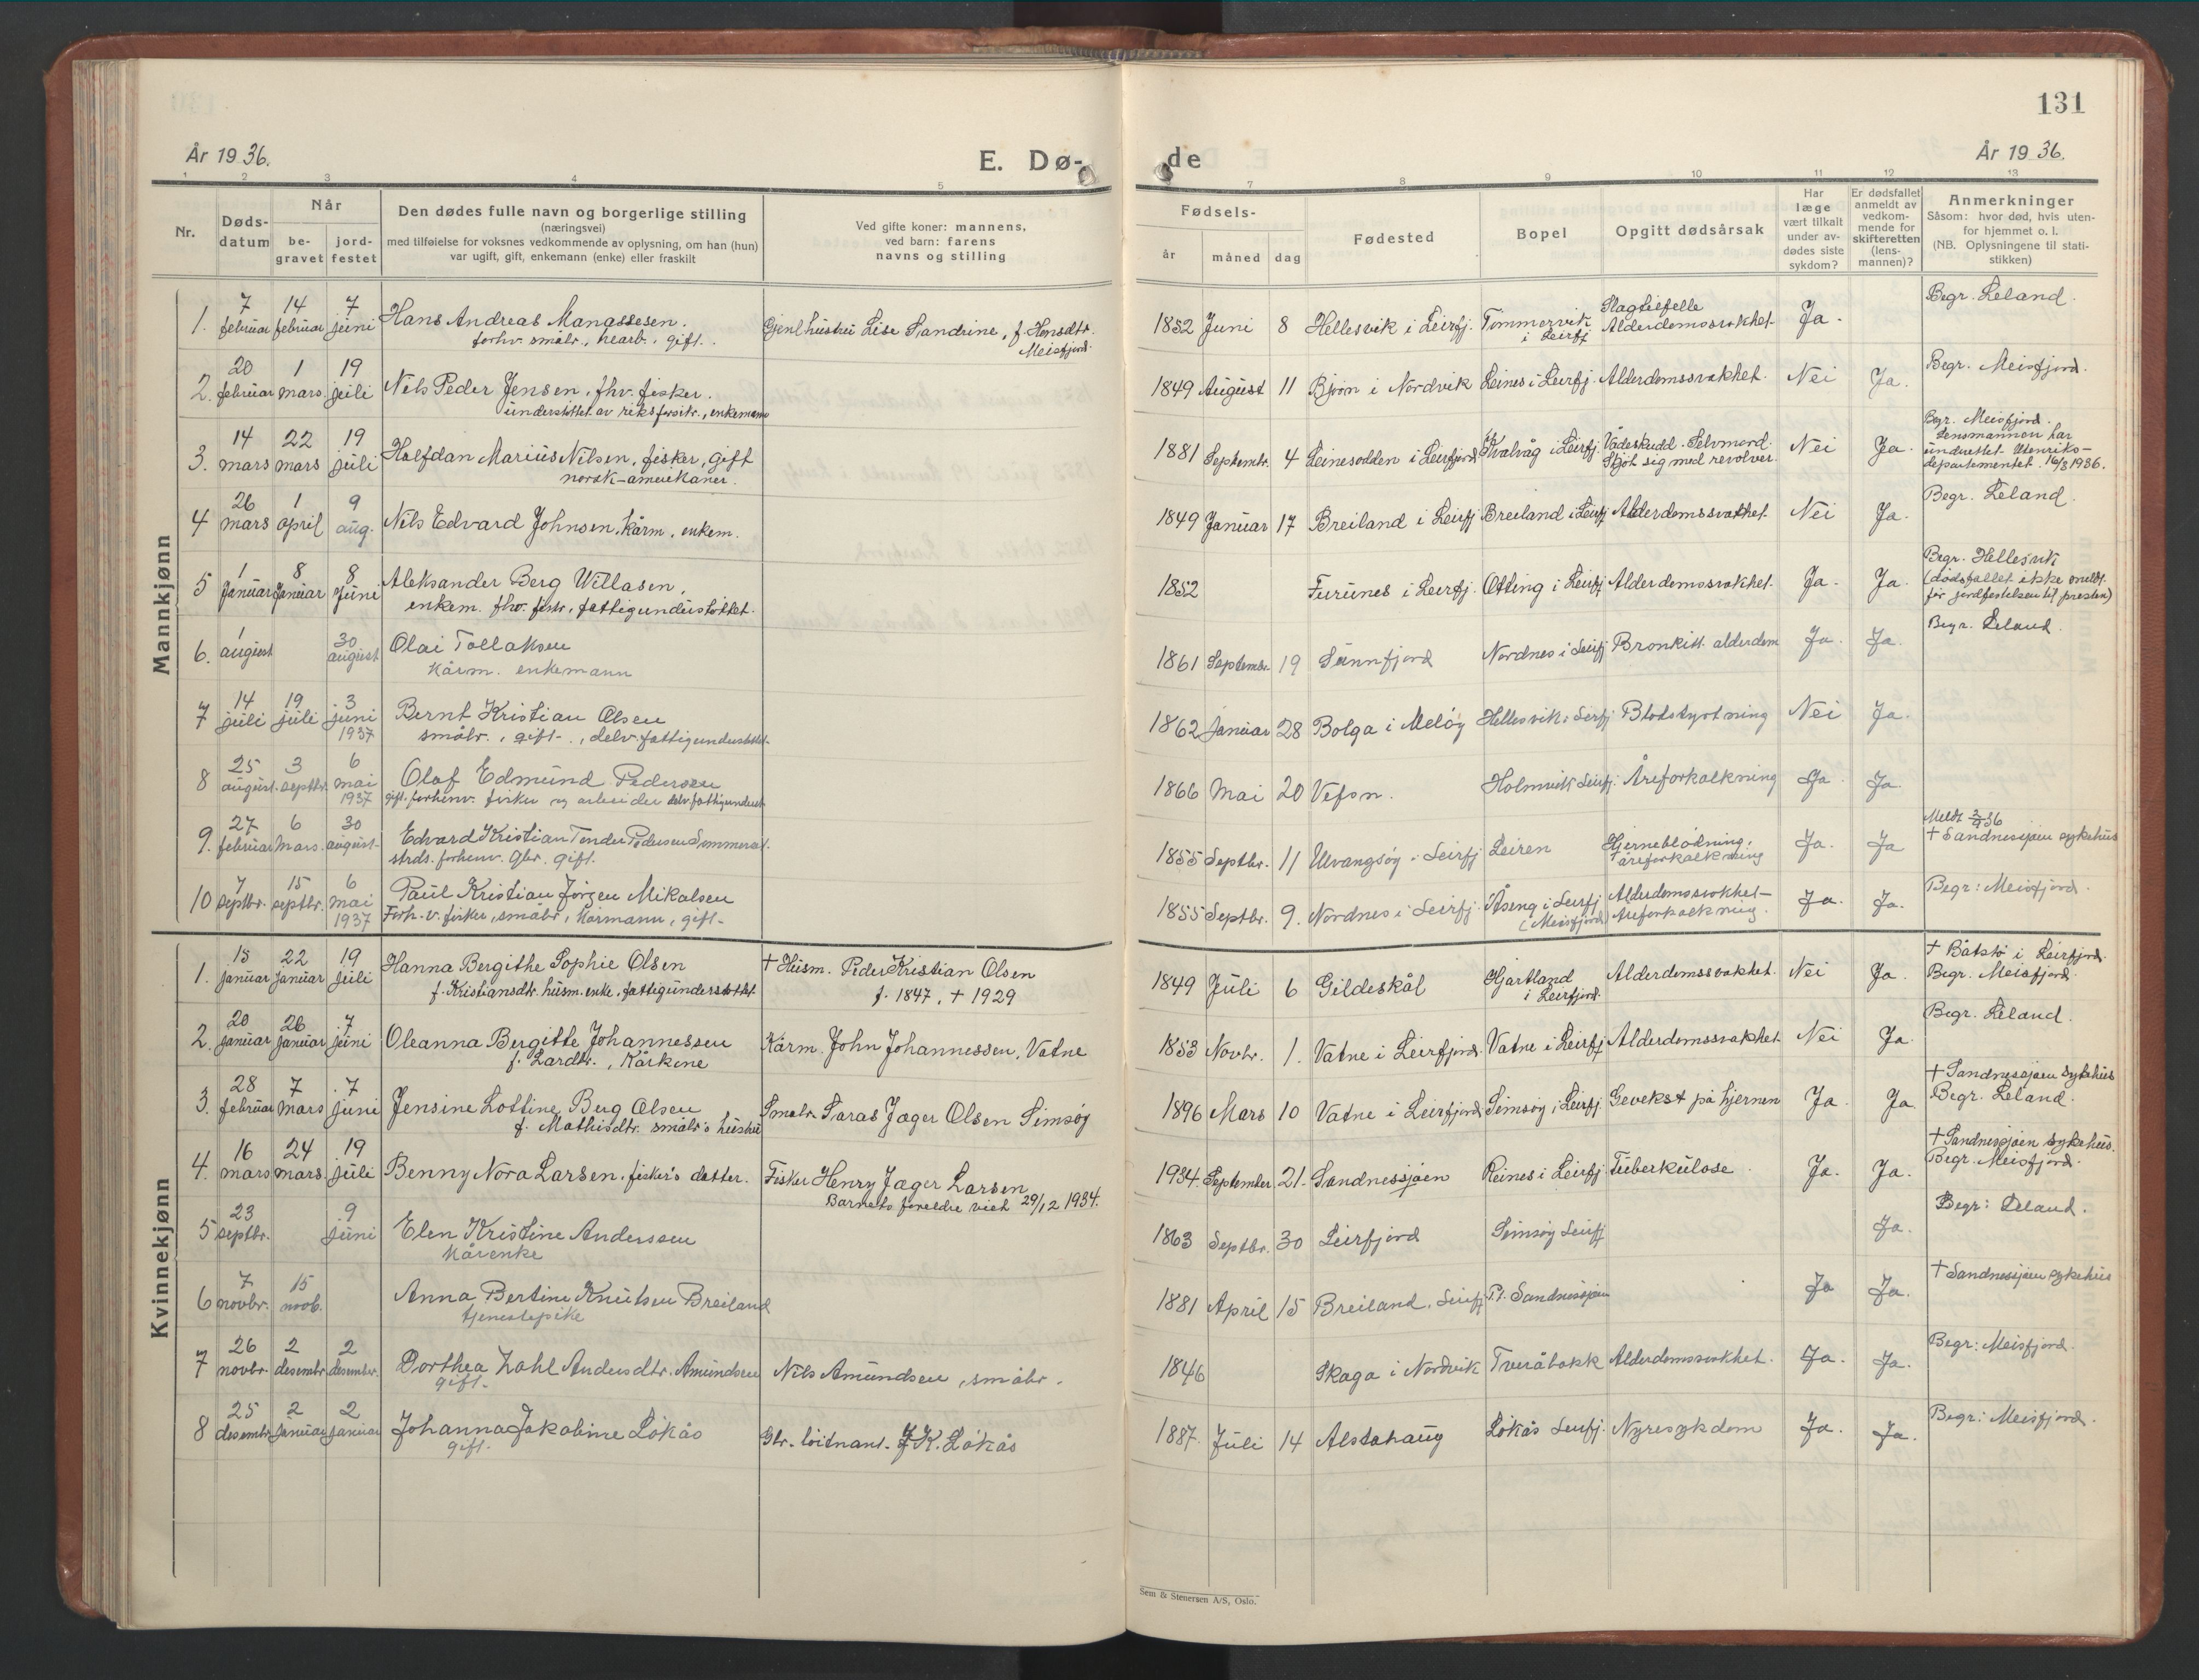 131
År 1936.
E. Dø-
de
År 1936.
1 2 3 4 5 7 8 9 10 11 12 13
Nr.
Døds-
datum
Når
be-
gravet
jord-
festet
Den dødes fulle navn og borgerlige stilling
(næringsvei)
med tilføielse for voksnes vedkommende av oplysning, om han (hun)
var ugift, gift, enkemann (enke) eller fraskilt
Ved gifte koner: mannens,
ved barn: farens
navns og stilling
Fødsels-
år
måned
dag
Fødested
Bopel
Opgitt dødsårsak
Har
læge
vært tilkalt
under av-
dødes siste
sykdom?
Er dødsfallet
anmeldt av
vedkom-
mende for
skifteretten
(lens-
mannen)?
Anmerkninger
Såsom: hvor død, hvis uten-
for hjemmet o. l.
(NB. Oplysningene til stati-
stikken)
Mannkjønn
1. 7 februar 14 februar 7 juni Hans Andreas Manassesen.
forhv. småbr., gift.
Lise Sandrine, f. Hansdtr.
Meisfjord.
1852 Juni 8 Hellesvik i Leirfj. Tømmervik i Leirfj Slagtilfelle Alderdomssvakhet. Ja. Begr. Leland.
2. 20 februar 1 mars. 19 juli Nils Peder Jensen, fhv. fisker.
understøttet av riksforsikr., enkemann
1849 August 11 Bjørn i Nordvik Leines i Leirfj. Alderdomssvakhet. Nei Ja. Begr. Meisfjord.
3. 14 mars 22 mars 19 juli Halfdan Marius Nilsen, fisker, gift
norsk-amerikaner.
1881 Septembr. 4 Leinesodden i Leirfjord Kvalvåg i Leirfj. Vådeskudd. Selvmord. Skjøt sig med revolver. Nei Ja. Begr. Meisfjord.
Lensmannen har
underrettet Utenriks-
departementet 16/3 1936.
4 26 mars 1 april 9 aug. Nils Edvard Johnsen, kårm., enkem.
1849 Januar 17 Breiland i Leirfj Breiland i Leirfj Alderdomssvakhet. Nei Ja. Begr. Leland.
5 1 Januar 8 Januar 8 Juni Aleksander Berg Willasen,
enkem. fhv. fiskr, fattigunderstøttet.
1852 Furunes i Leirfj. Otting i Leirfj Alderdomssvakhet. Ja. Ja. Begr. Hellesvik
(dødsfallet ikke meldt
før jordfestelsen til presten)
6. 1 august 30 august Olai Tollaksen
Kårm. enkemann
1861 Septembr. 19 Sunnfjord Nordnes i Leirfj Bronkitt. alderdom Ja. Ja. Begr. Leland.
7 14 juli 19 juli 3 juni 1937 Bernt Kristian Olsen
småbr., gift., delv. fattigunderstøttet.
1862 Januar 28 Bolga i Meløy Hellesvik i Leirfj Blodstyrtning Nei Ja.
8 25 august. 3 septbr. 6 mai 1937 Olaf Edmund Pedersen
gift. forhenv. fisker og arbeider delv. fattigunderst.
1866 Mai 20 Vefsn. Holmvik Leirfj. Åreforkalkning Ja. Ja.
9. 27 februar 6 Mars. 30 august. Edvard Kristian Tender Pedersen Sommerset.
strds. forhenv. gbr. gift.
1855 Septbr. 11 Ulvangsøy i Leirfj Leiren Hjerneblødning, åreforkalkning Ja. Ja
† Sandnessjøen sykehus
10 7 septbr. 15 septbr. 6 mai 1937 Paul Kristian Jørgen Mikalsen
Forh. v. fisker, småbr, kårmann, gift.
1855 Septbr. 9. Nordnes i Leirfj. Åseng i Leirfj (Meisfjord) Alderdomssvakhet- Åreforkalkning. Ja. Ja. Begr: Meisfjord.
Kvinnekjønn
1. 15 Januar 22 Januar 19 Juli Hanna Bergithe Sophie Olsen
f. Kristiansdtr. husm. enke, fattigunderstøttet.
† Husm. Peder Kristian Olsen
f. 1847, † 1929
1849 Juli 6 Gildeskål Hjartland i Leirfjord. Alderdomssvakhet. Nei Ja. † Båtstø i Leirfjord.
Begr. Meisfjord.
2. 20 Januar 26 Januar 7 juni Oleanna Bergitte Johannessen
f. Larsdtr., Kårkone
Kårm. John Johannessen, Vatne
1853 Novbr. 1. Vatne i Leirfjord. Vatne i Leirfj Alderdomssvakhet Nei Ja. Begr. Leland.
3. 28 februar 7 mars 7 juni Jensine Lottine Berg Olsen
f. Mathisdtr. småbr's hustru
Småbr. Saras Jæger Olsen Simsøy
1896 Mars 10 Vatne i Leirfjord Simsøy i Leirfj. Gevekst på hjernen Ja Ja. † Sandnessjøen Sykehus
Begr. Leland.
4. 16 mars 24 mars. 19 juli Benny Nora Larsen, fisker's datter.
Fisker Henry Jæger Larsen
Barnets foreldre viet 29/12 1934.
1934. September 21. Sandnessjøen Reines i Leirfj Tuberkulose. Ja. Ja. † Sandnessjøen Sykehus.
Begr. Meisfjord.
5 23 septbr. 9 juni Elen Kristine Anderssen
Kårenke
1863 Septbr. 30 Leirfjord Simsøy Leirfj Ja. Begr: Leland.
6 7 novbr. 15 novb. Anna Bertine Knutsen Breiland
tjenestepike
1881 April 15 Breiland, Leirfj P.t. Sandnessjøen Ja Ja. † Sandnessjøen sykehus
7 26 novbr. 2 desembr. 2 desembr. Dorthea Zahl Andersdtr. Amundsen
gift.
Nils Amundsen, småbr.
1846 Skaga i Nordvik Tveråbakk Alderdomssvakhet. Ja. Ja. Begr: Meisfjord.
8 25 desembr 2 Januar 2 Januar Johanna Jakobine Løkås
gift.
Gbr. løitnant. J. K. Løkås
1887. Juli 14 Alstahaug Løkås Leirfj. Nyresykdom Ja. Ja. Begr: Meisfjord.
Sem & Stenersen A/S, Oslo.